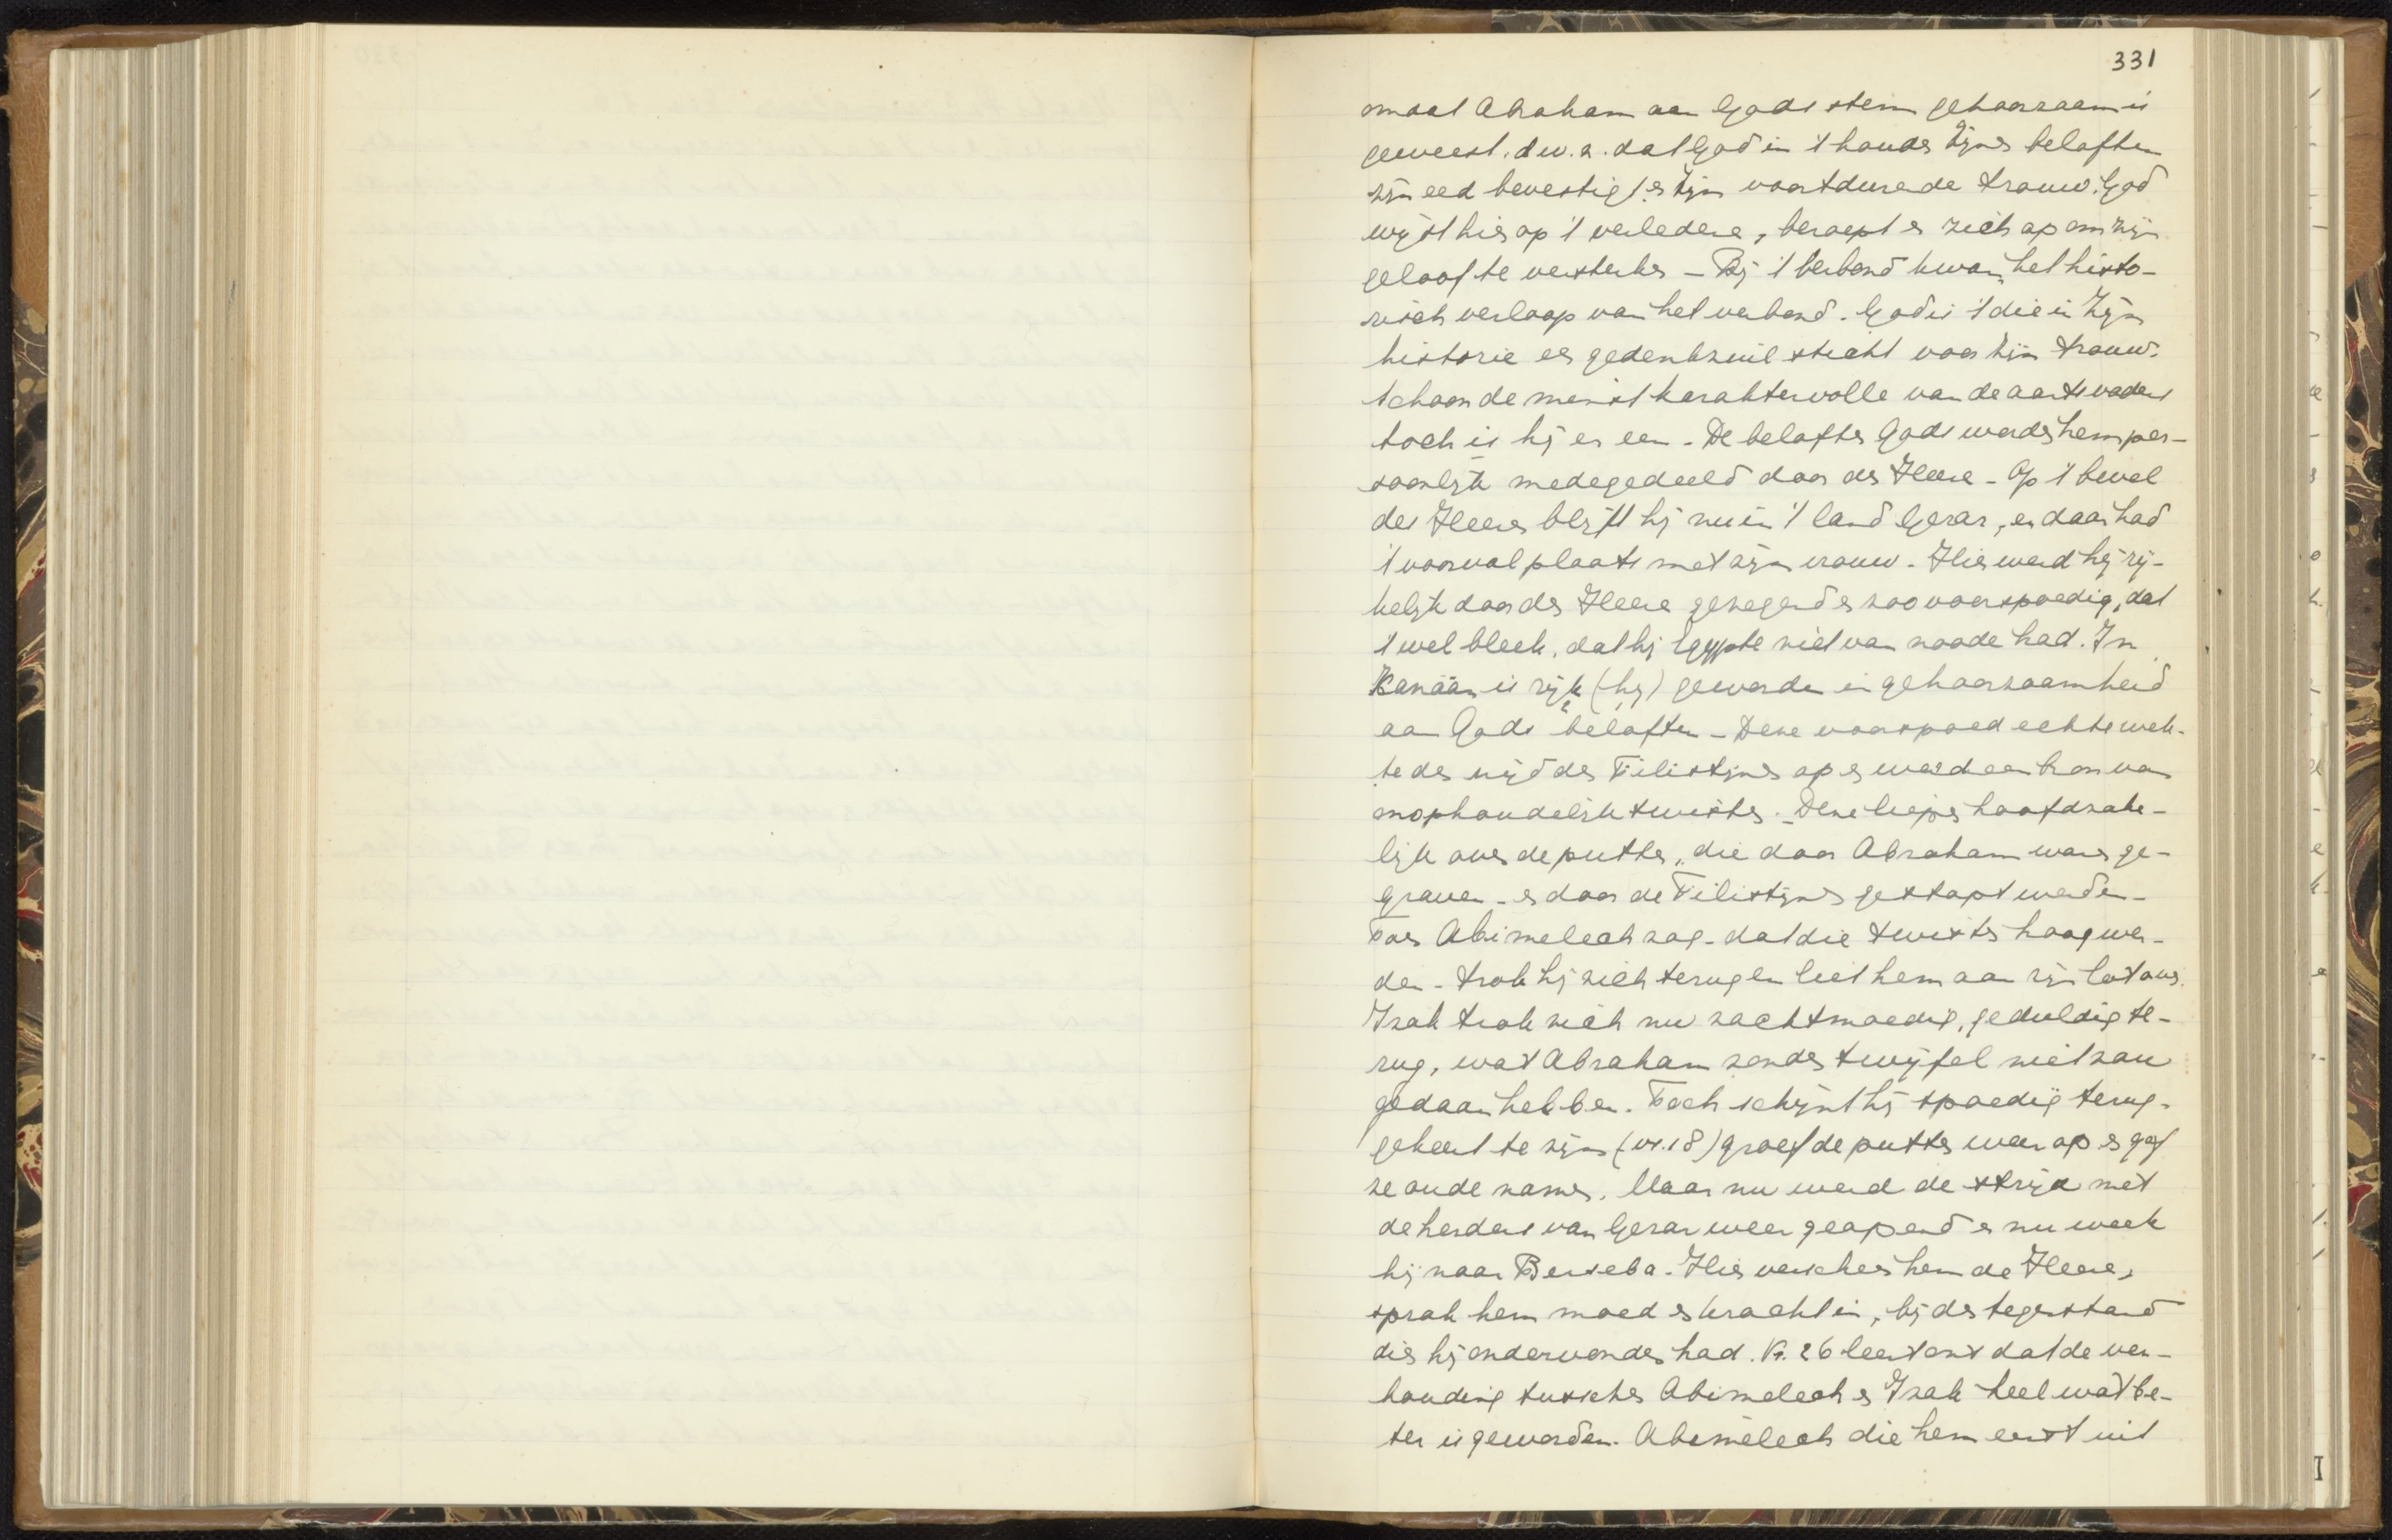 331
omdat Abraham aan Gods stem gehoorzaam is
geweest. d.w.z. dat God in 't houden Zijner beloften
zijn eed bevestigt en Zijn voortdurende trouw. God
wijst hier op 't verledene, beroept er zich op om zijn
geloof te versterken – Bij 't verbond kwam het histo-
risch verloop van het verbond. God is 't die in Zijn
historie een gedenkzuil sticht voor Zijn trouw.
schoon de minst karaktervolle van de aartsvaders
toch is hij er een – De beloften Gods werden hem per-
soonlijk medegedeeld door den Heere – Op 't bevel
des Heeren blijft hij nu in 't land Gerar, en daar had
't voorval plaats met zijn vrouw – Hier werd hij rij-
kelijk door den Heere gezegend en zoo voorspoedig, dat
't wel bleek, dat hij Egypte niet van noode had. In
Kanaän is rijk (hij) geworden in gehoorzaamheid
aan Gods beloften – Deze voorspoed echter wek-
te den nijd der Filistijnen op en werd een bron van
onophoudelijke twisten. – Deze liepen hoofdzake-
lijk over de putten, die door Abraham waren ge-
graven – en door de Filistijnen gestopt werden –
Toen Abimelech zag – dat die twisten hoog wer-
den – trok hij zich terug en liet hem aan zijn lot over.
Izak trok zich nu zachtmoedig, geduldig te-
rug, wat Abraham zonder twijfel niet zou
gedaan hebben. Toch schijnt hij spoedig terug-
gekeerd te zijn (vs. 18) groef de putten weer op en gaf
ze oude namen. Maar nu werd de strijd met
de herders van Gerar weer geopend en nu week
hij naar Berseba – Hier verscheen hem de Heere,
sprak hem moed en kracht in, bij den tegenstand
dien hij ondervonden had. Vs. 26 leert ons dat de ver-
houding tusschen Abimelech en Izak heel wat be-
ter is geworden. Abimelech die hem eerst uit